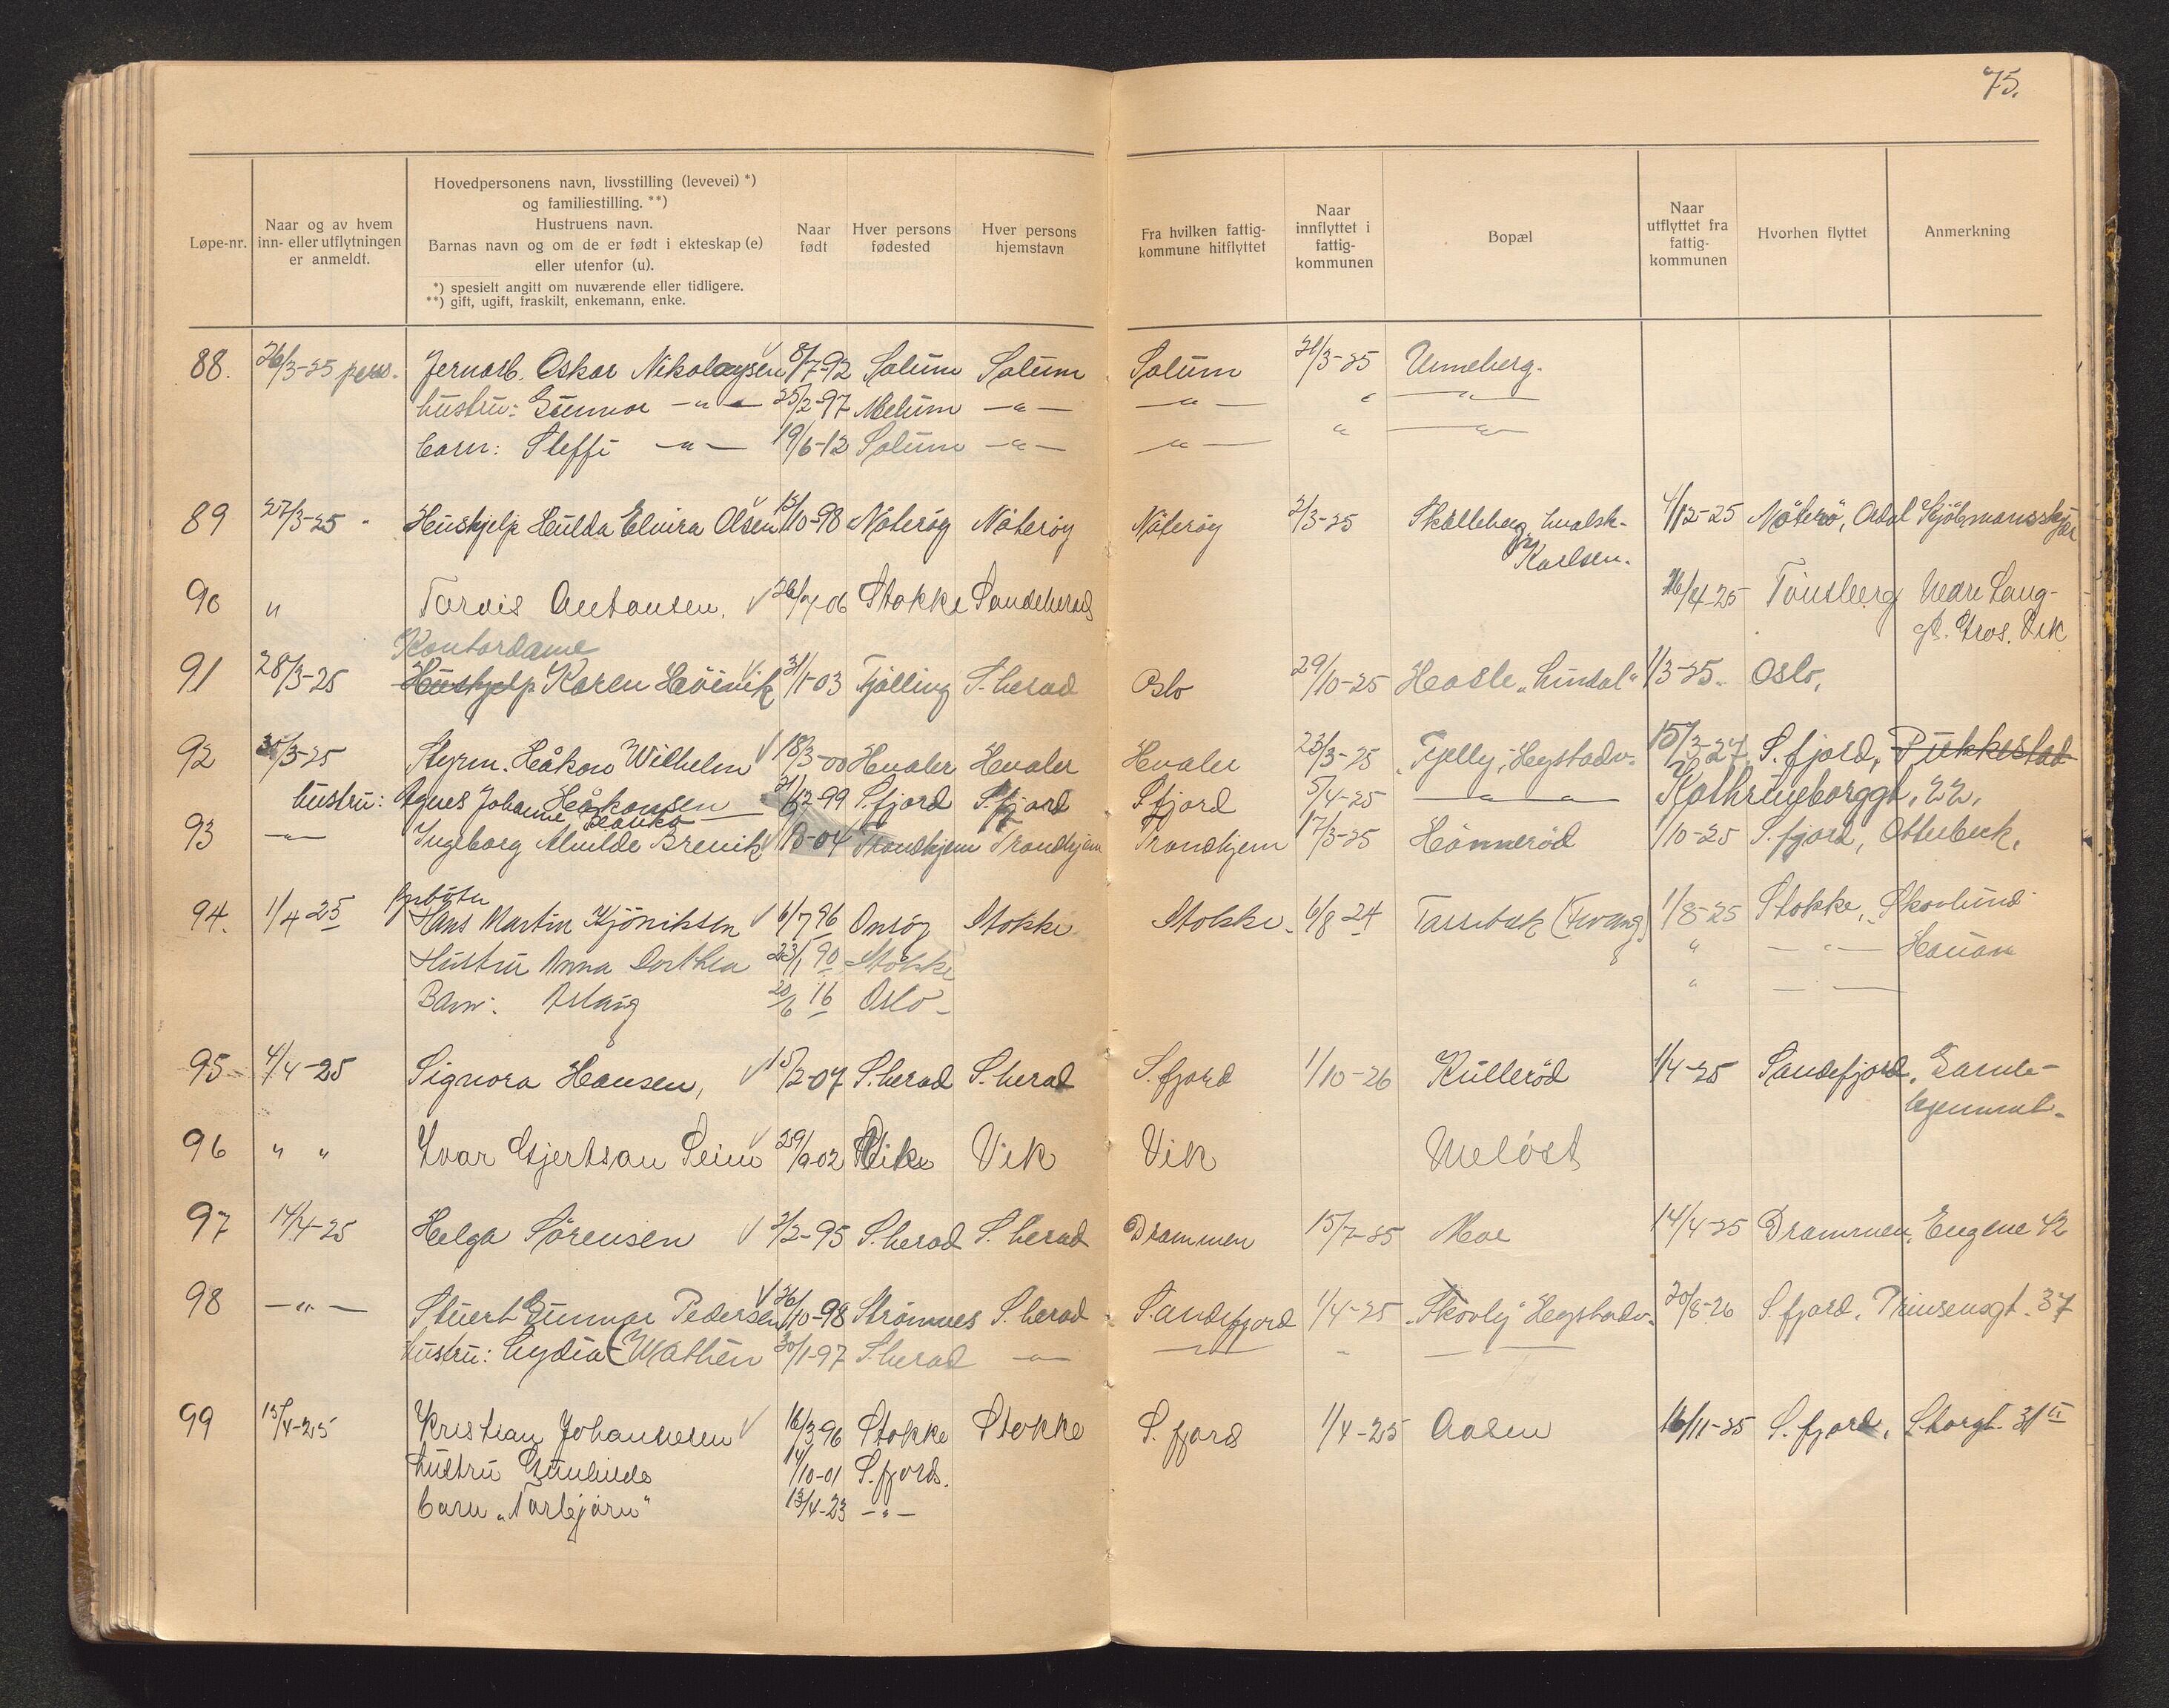 75.
Løpe-nr.
Naar og av hvem inn- eller utflytningen er anmeldt.
Hovedpersonens navn, livsstilling (levevei) *)
og familiestilling. **)
Hustruens navn.
Barnas navn og om de er født i ekteskap (e)
eller utenfor (u).
*) spesielt angitt om nuværende eller tidligere.
**) gift, ugift, fraskilt, enkemann, enke.
Naar født
Hver persons fødested
Hver persons hjemstavn
Fra hvilken fattig-kommune hitflyttet
Naar innflyttet i fattig-kommunen
Bopæl
Naar utflyttet fra fattig-kommunen
Hvorhen flyttet
Anmerkning
88. 26/3-25 pers. Jernarb. Oskar Nikolaysen 8/7-92 Solum Solum Solum 21/3-25 Unneberg.
hustru: Gunvor -"- 25/2-97 Melum -"- -"- " -"-
barn: Steffi -"- 19/6-12 Solum -"- -"- " -"-
89 27/3-25 " Huskjelp Hulda Elvira Olsen 12/10-98 Nøterøy Nøterøy Nøterøy 2/3-25 Skalleberg, hvalsk. 4/12-25 Nøterø, Ordal Kjøbmannskjær
Karlsen.
90 " Torvis Antonsen. 26/7-06 Stokke Sandeherad 26/4-25 Tønsberg Nedre Lang-
gt. Tros. Vik
Kontordame
91 28/3-25 Huskjelp Karen Høivik 31/1-03 Tjølling S.herad Oslo 29/10-25 Hasle "Lindal" 1/3-25. Oslo.
92 30/3-25 Styrm. Håkon Wilhelm 18/3-00 Hvaler Hvaler Hvaler 23/3-25 "Fjelly", Hegstadv. 15/3-27 S.fjord, Pukkestad
hustru: Agnes Johanne Håkonsen 21/12-99 S.fjord S.fjord S.fjord 5/4-25 -"- Kathrineborggt. 22.
93 -"- Ingeborg Alvilde Brevik -04 Trondhjem Trondhjem Trondhjem 17/3-25 Hønnerød 1/10-25 S.fjord, Otterbeck.
94. 1/4 25 Hans Martin Kjøniksen 6/7 96 Onsøy Stokke Stokke. 6/8 24 Tassebæk (Fevang) 1/8-25 Stokke, Skovlund
Hustru Anna Dorthea 23/1 90 Stokke " -"- Hauan
Barn: Aslaug 20/6 16 Oslo - " -
95 4/4-25 Signora Hansen, 15/2-07 S.herad S.herad S.fjord 1/10-26 Kullerød 1/4-25 Sandefjord, Gamle-
hjemmet.
96 " " Ivar Gjertsan Seim 29/9-02 Vik Vik Meløst
97 14/4-25 Helga Sørensen 2/2-95 S.herad S.herad Drammen 15/7-25 Moe 14/4-25 Drammen, Engene 42
98 -"- Stuert Gunnar Pedersen 26/10-98 Strømnes S.herad Sandefjord 1/4-25 "Skovly" Hegstadv. 20/8-26 S.fjord, Prinsensgt. 37
hustru: Lydia (Mathea 30/1-97 S.herad -"- -"- " -"-
99 15/4-25 Kristian Johannesen 16/3-96 Stokke Stokke S.fjord 1/4-25 Aasen 16/11-25 S.fjord, Storgt. 31 II
hustru Gunhilda 14/10-01 S.fjord.
barn "Torbjørn" 13/4-23 -"-